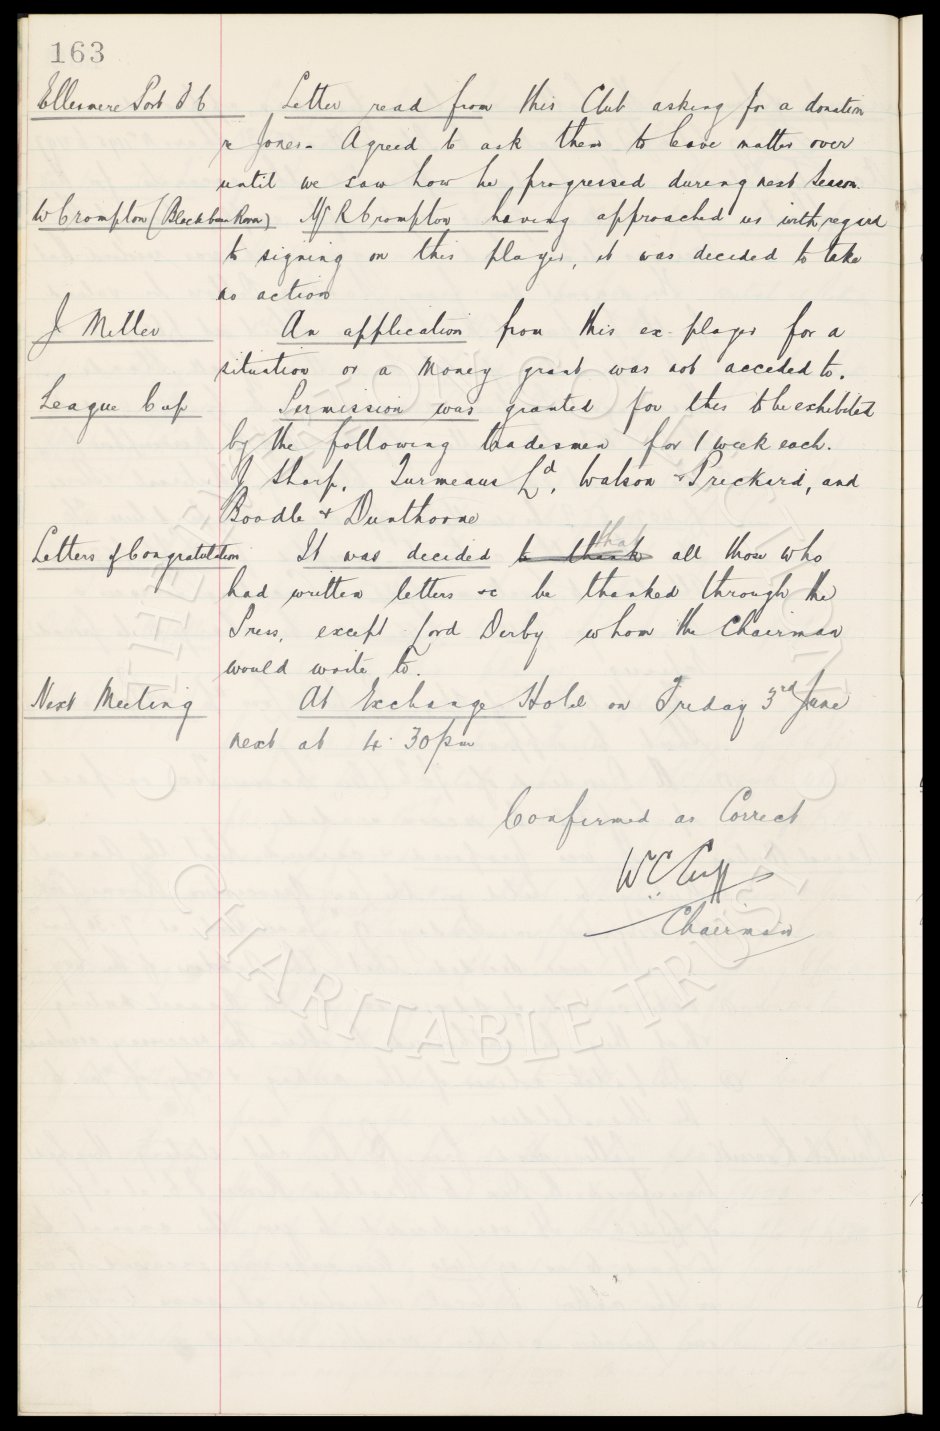 163
Ellesmere Port F C Letter read from this Club asking for a donation
re Jones. Agreed to ask them to leave matter over
until we saw how he progressed during next Season.
W Crompton (Blackburn Rovers) Mr R Crompton having approached us with regard
to signing on this player, it was decided to take
no action
J Miller An application from this ex-player for a
situation or a money grant was not acceded to.
League Cup Permission was granted for this to be exhibited
by the following tradesmen for 1 week each.
J Sharp, Turmeaus Ld, Watson & Prickard, and
Boodle & Dunthorne
Letters of Congratulation It was decided to thank that all those who
had written letters &c be thanked through the
Press, except Lord Derby whom the Chairman
would write to.
Next Meeting At Exchange Hotel on Friday 3rd June
next at 4.30pm
Confirmed as Correct
W.C. Cuff
Chairman
THE EVERTON COLLECTION
CHARITABLE TRUST